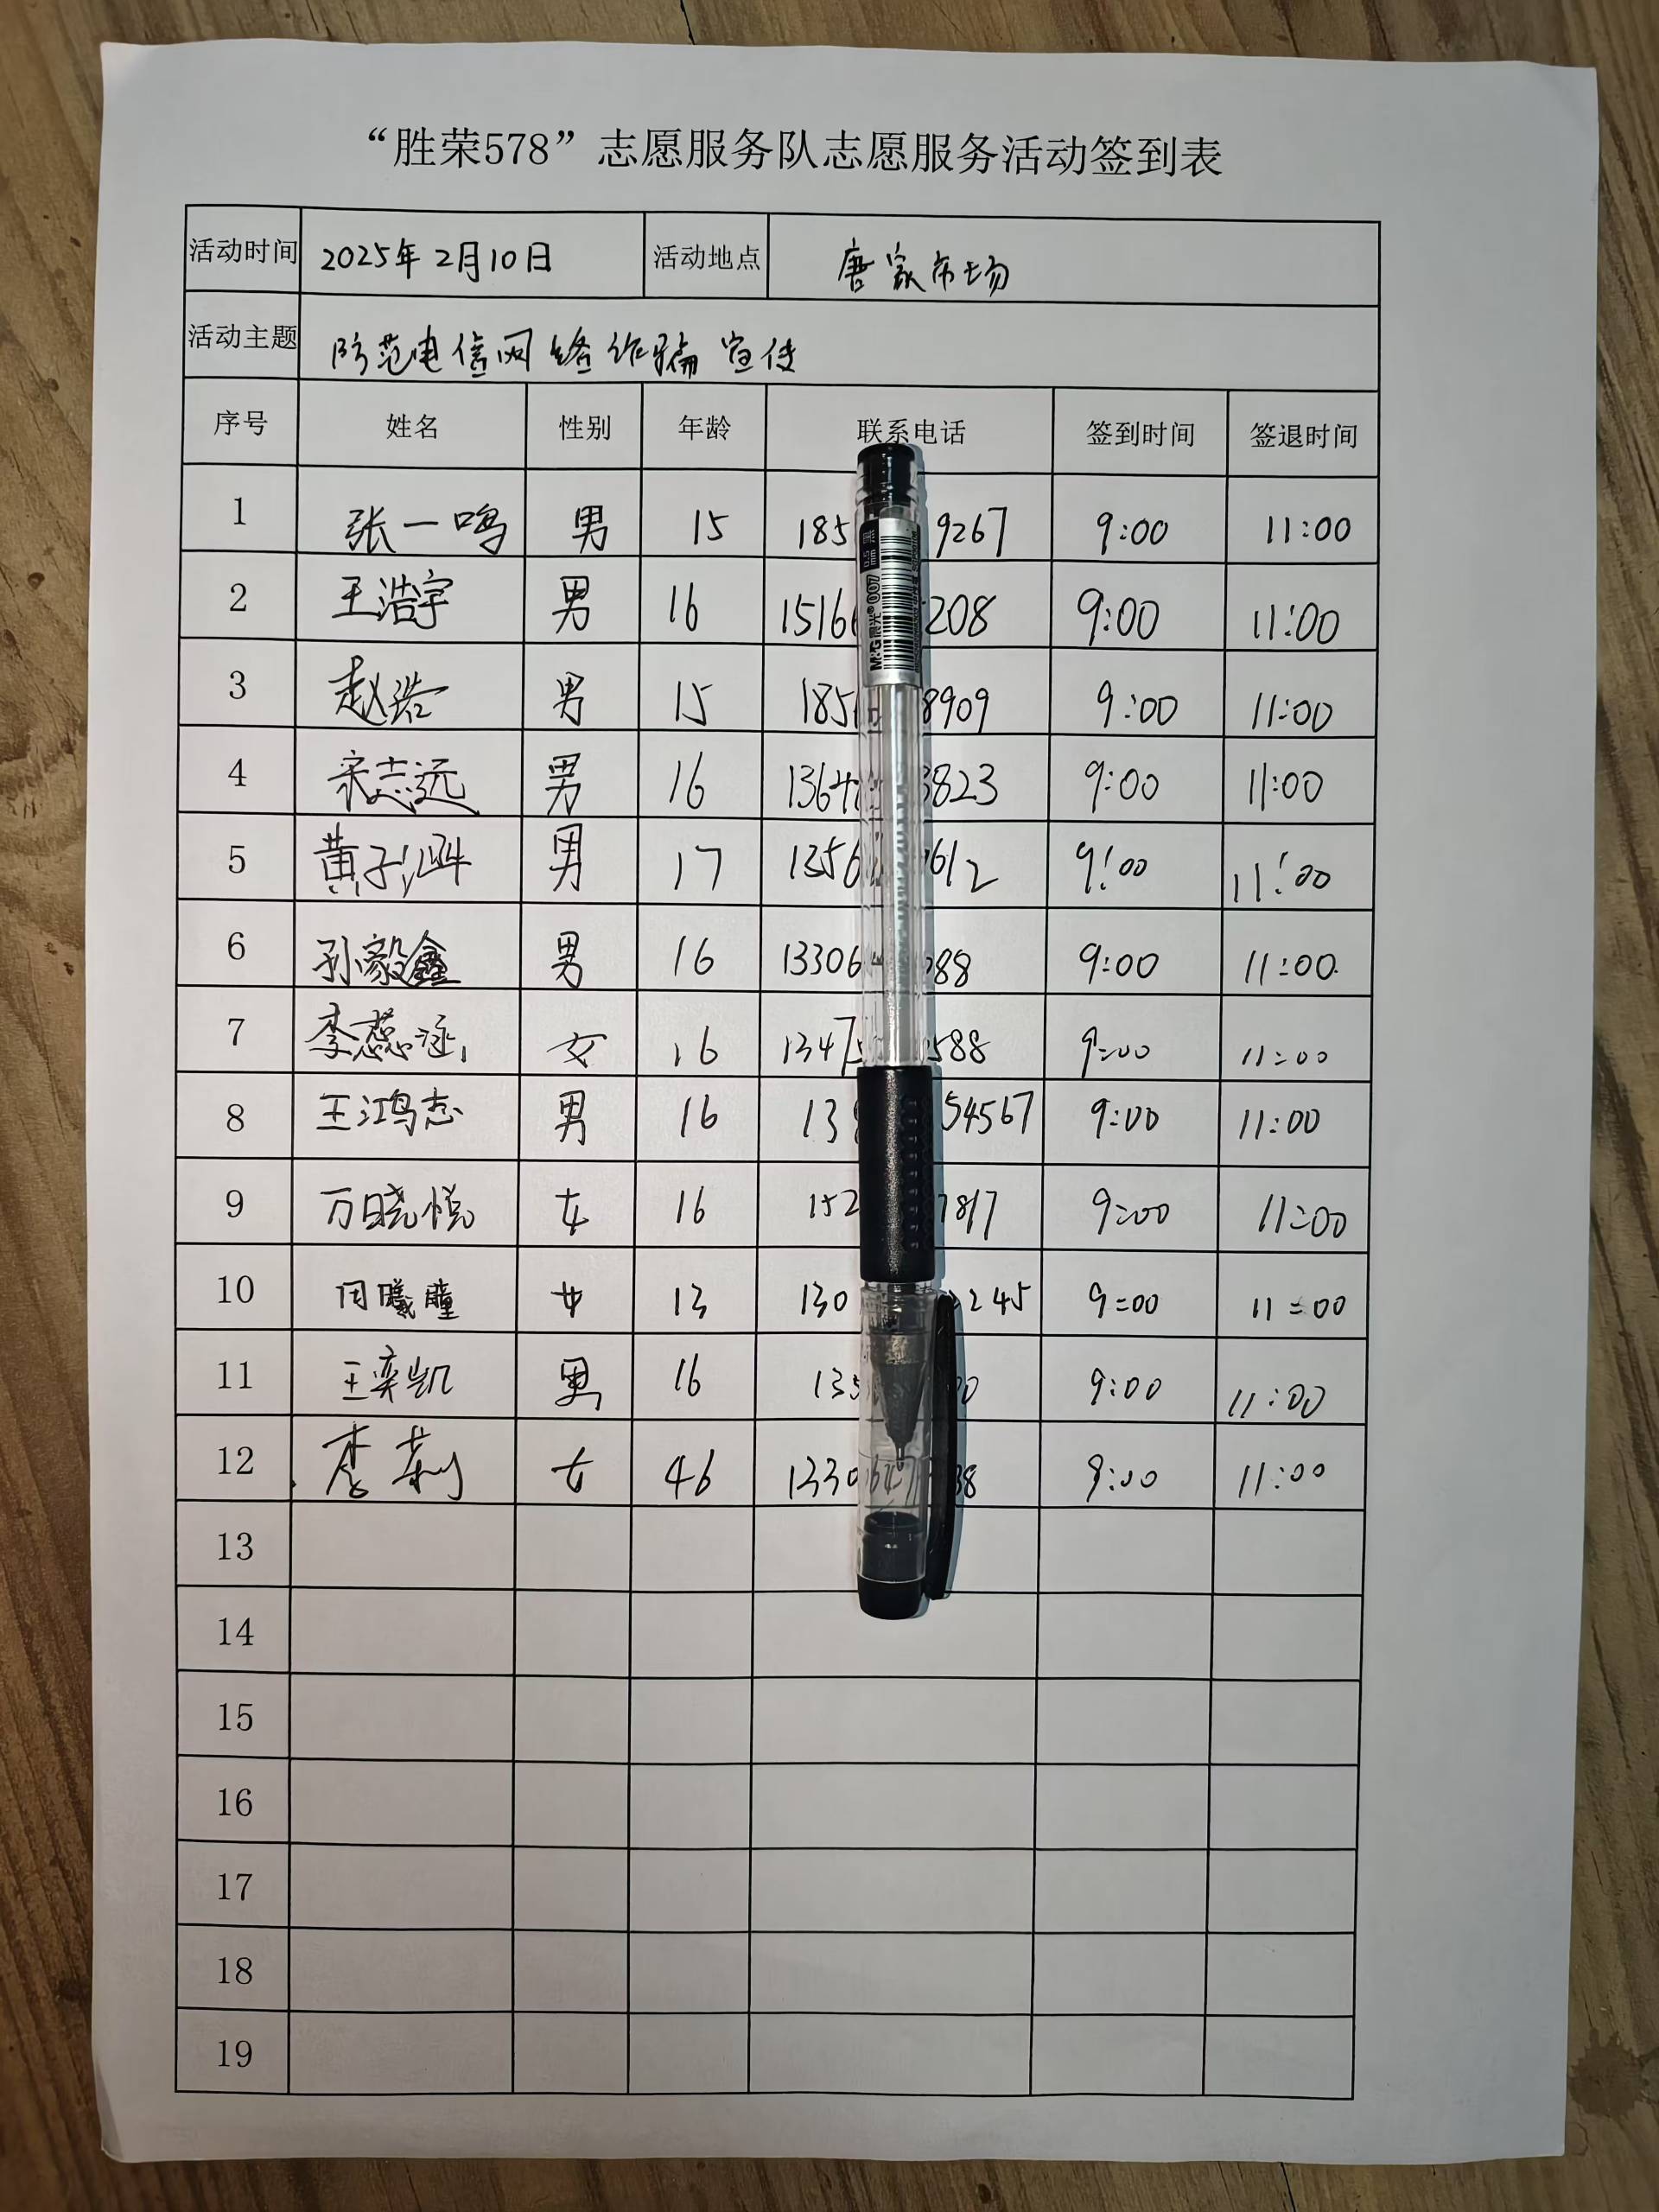 “胜荣578”志愿服务队志愿服务活动签到表
活动时间 2025年2月10日 活动地点 唐家市场
活动主题 防范电信网络诈骗宣传
序号 姓名 性别 年龄 联系电话 签到时间 签退时间
1 张一鸣 男 15 185 9267 9:00 11:00
2 王浩宇 男 16 1516 208 9:00 11:00
3 赵浩 男 15 185 8909 9:00 11:00
4 宋志远 男 16 1364 3823 9:00 11:00
5 黄子 男 17 1356 612 9:00 11:00
6 孙毅鑫 男 16 13306 088 9:00 11:00
7 李蕊涵 女 16 1347 588 9:00 11:00
8 王鸿志 男 16 13 54567 9:00 11:00
9 万晓悦 女 16 152 7817 9:00 11:00
10 周曦瞳 女 13 130 245 9:00 11:00
11 王奕凯 男 16 135 0 9:00 11:00
12 李莉 女 46 1330647 38 9:00 11:00
13
14
15
16
17
18
19
M&G 晨光 007